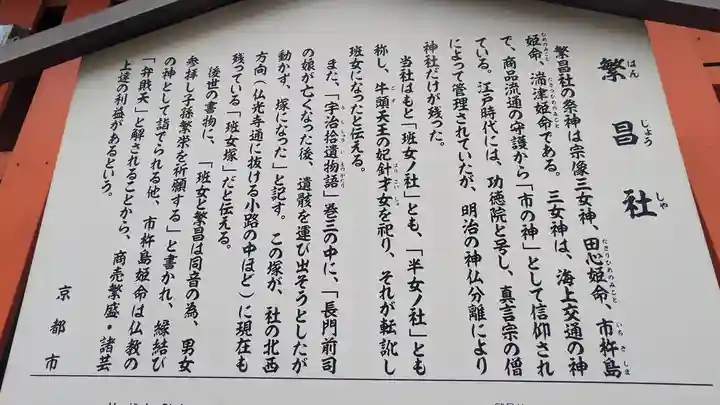 繁昌社
はんじょうしゃ
繁昌社の祭神は宗像三女神、田心姫命、市杵島
たぎりひめのみこと
いちきしま
姫命、湍津姫命である。三女神は、海上交通の神
ひめのみこと
たぎつひめのみこと
で、商品流通の守護から「市の神」として信仰され
ている。江戸時代には、功徳院と号し、真言宗の僧
によって管理されていたが、明治の神仏分離により
神社だけが残った。
当社はもと「班女ノ社」とも、「半女ノ社」とも
称し、牛頭天王の妃針才女を祀り、それが転訛し
ごず
はりさいじょ
班女になったと伝える。
また、「宇治拾遺物語」巻三の中に、「長門前司
うじしゅういものがたり
の娘が亡くなった後、遺骸を運び出そうとしたが
動かず、塚になった」と記す。この塚が、社の北西
方向(仏光寺通に抜ける小路の中ほど)に現在も
残っている「班女塚」だと伝える。
後世の書物に、「班女と繁昌は同音の為、男女
参拝し子孫繁栄を祈願する」と書かれ、縁結び
の神として詣でられる他、市杵島姫命は仏教の
「弁財天」と解されることから、商売繁盛・諸芸
上達の利益があるという。
京都市